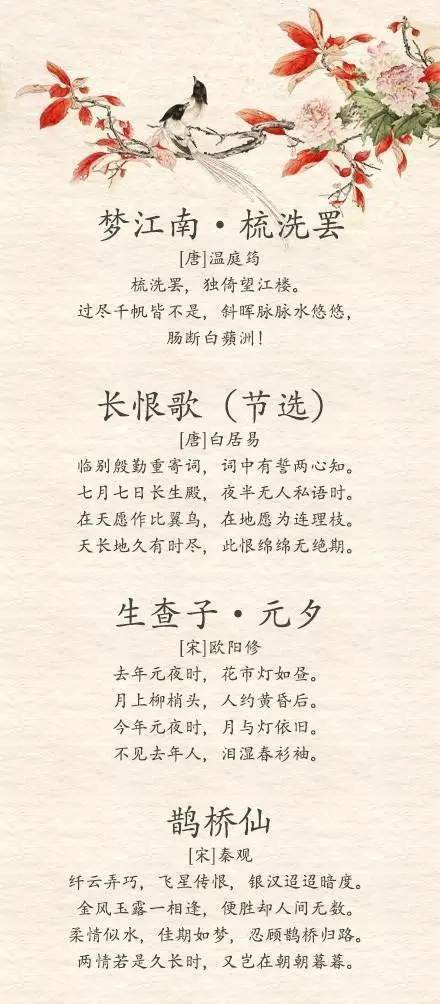 梦江南·梳洗罢
[唐]温庭筠
梳洗罢，独倚望江楼。
过尽千帆皆不是，斜晖脉脉水悠悠，
肠断白蘋洲！
长恨歌（节选）
[唐]白居易
临别殷勤重寄词，词中有誓两心知。
七月七日长生殿，夜半无人私语时。
在天愿作比翼鸟，在地愿为连理枝。
天长地久有时尽，此恨绵绵无绝期。
生查子·元夕
[宋]欧阳修
去年元夜时，花市灯如昼。
月上柳梢头，人约黄昏后。
今年元夜时，月与灯依旧。
不见去年人，泪湿春衫袖。
鹊桥仙
[宋]秦观
纤云弄巧，飞星传恨，银汉迢迢暗度。
金风玉露一相逢，便胜却人间无数。
柔情似水，佳期如梦，忍顾鹊桥归路。
两情若是久长时，又岂在朝朝暮暮。